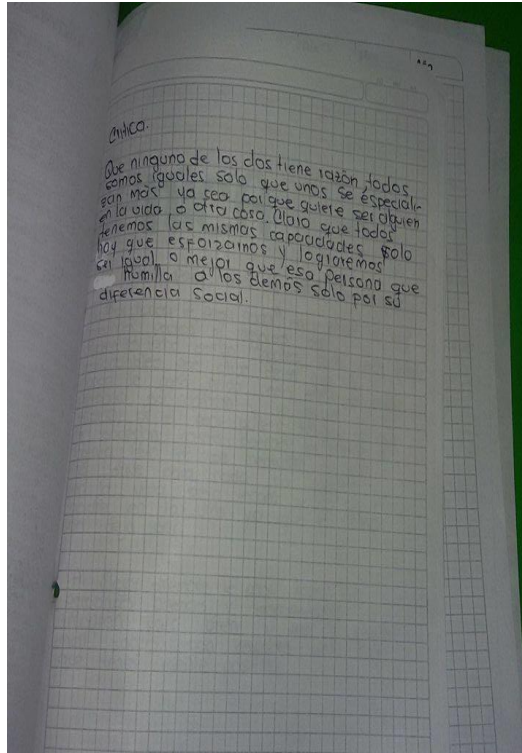 Critico.
Que ninguno de los dos tiene razón, todos
somos iguales solo que unos se especiali-
zan más ya sea por que quiere ser alguien
en la vida o otra cosa. Claro que todos
tenemos las mismas capacidades solo
hay que esforzarnos y lograremos
ser igual o mejor que esa persona que
humilla a los demás solo por su
diferencia social.